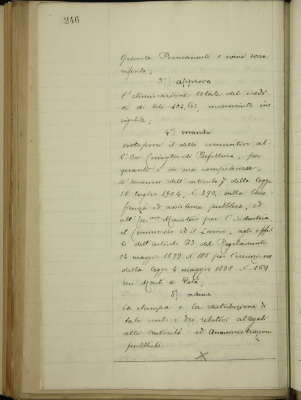 246
Giunta Permanente e come sora
riporto;
3º) approva
l'eliminazione totale del credito
di lire 404,60, inesigibile
4º) manda
sottoporre il detto consuntivo al-
l'On. Consiglio di Prefettura, per
quanto è di sua competenza,
a' sensi dell'articolo 7 della legge
18 luglio 1904, N. 390, sulla bene-
ficenza ed assistenza pubblica, ed
all'On. Ministero per l'industria
il Commercio ed il Lavoro, agli effet-
ti dell'articolo 23 del Regolamento
14 maggio 1899 N. 185 per l'esecuzione
della legge 4 maggio 1898 N. 169
sui Monti di Pietà.
5º)
la stampa e la distribuzione di
tale conto e dei relativi allegati
alle autorità ed Amministrazioni
pubbliche.